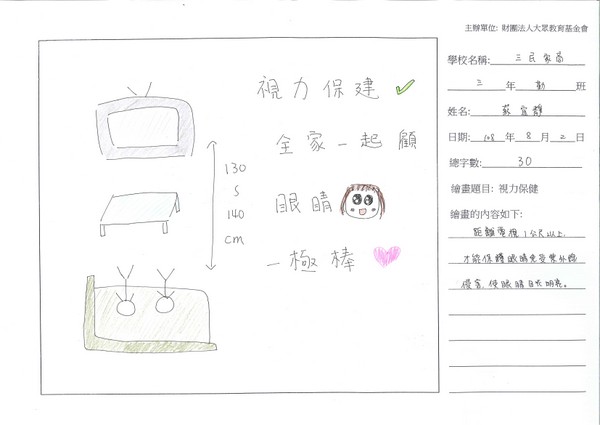 主辦單位: 財團法人大眾教育基金會
視力保建
全家一起顧
眼睛
一極棒
130
S
140
cm
學校名稱: 三民家商
三年勤班
姓名: 蘇宜靜
日期: 108年8月2日
總字數: 30
繪畫題目: 視力保健
繪畫的內容如下:
距離電視1公尺以上,
才能保護眼睛免受紫外線
侵害,使眼睛自然明亮。